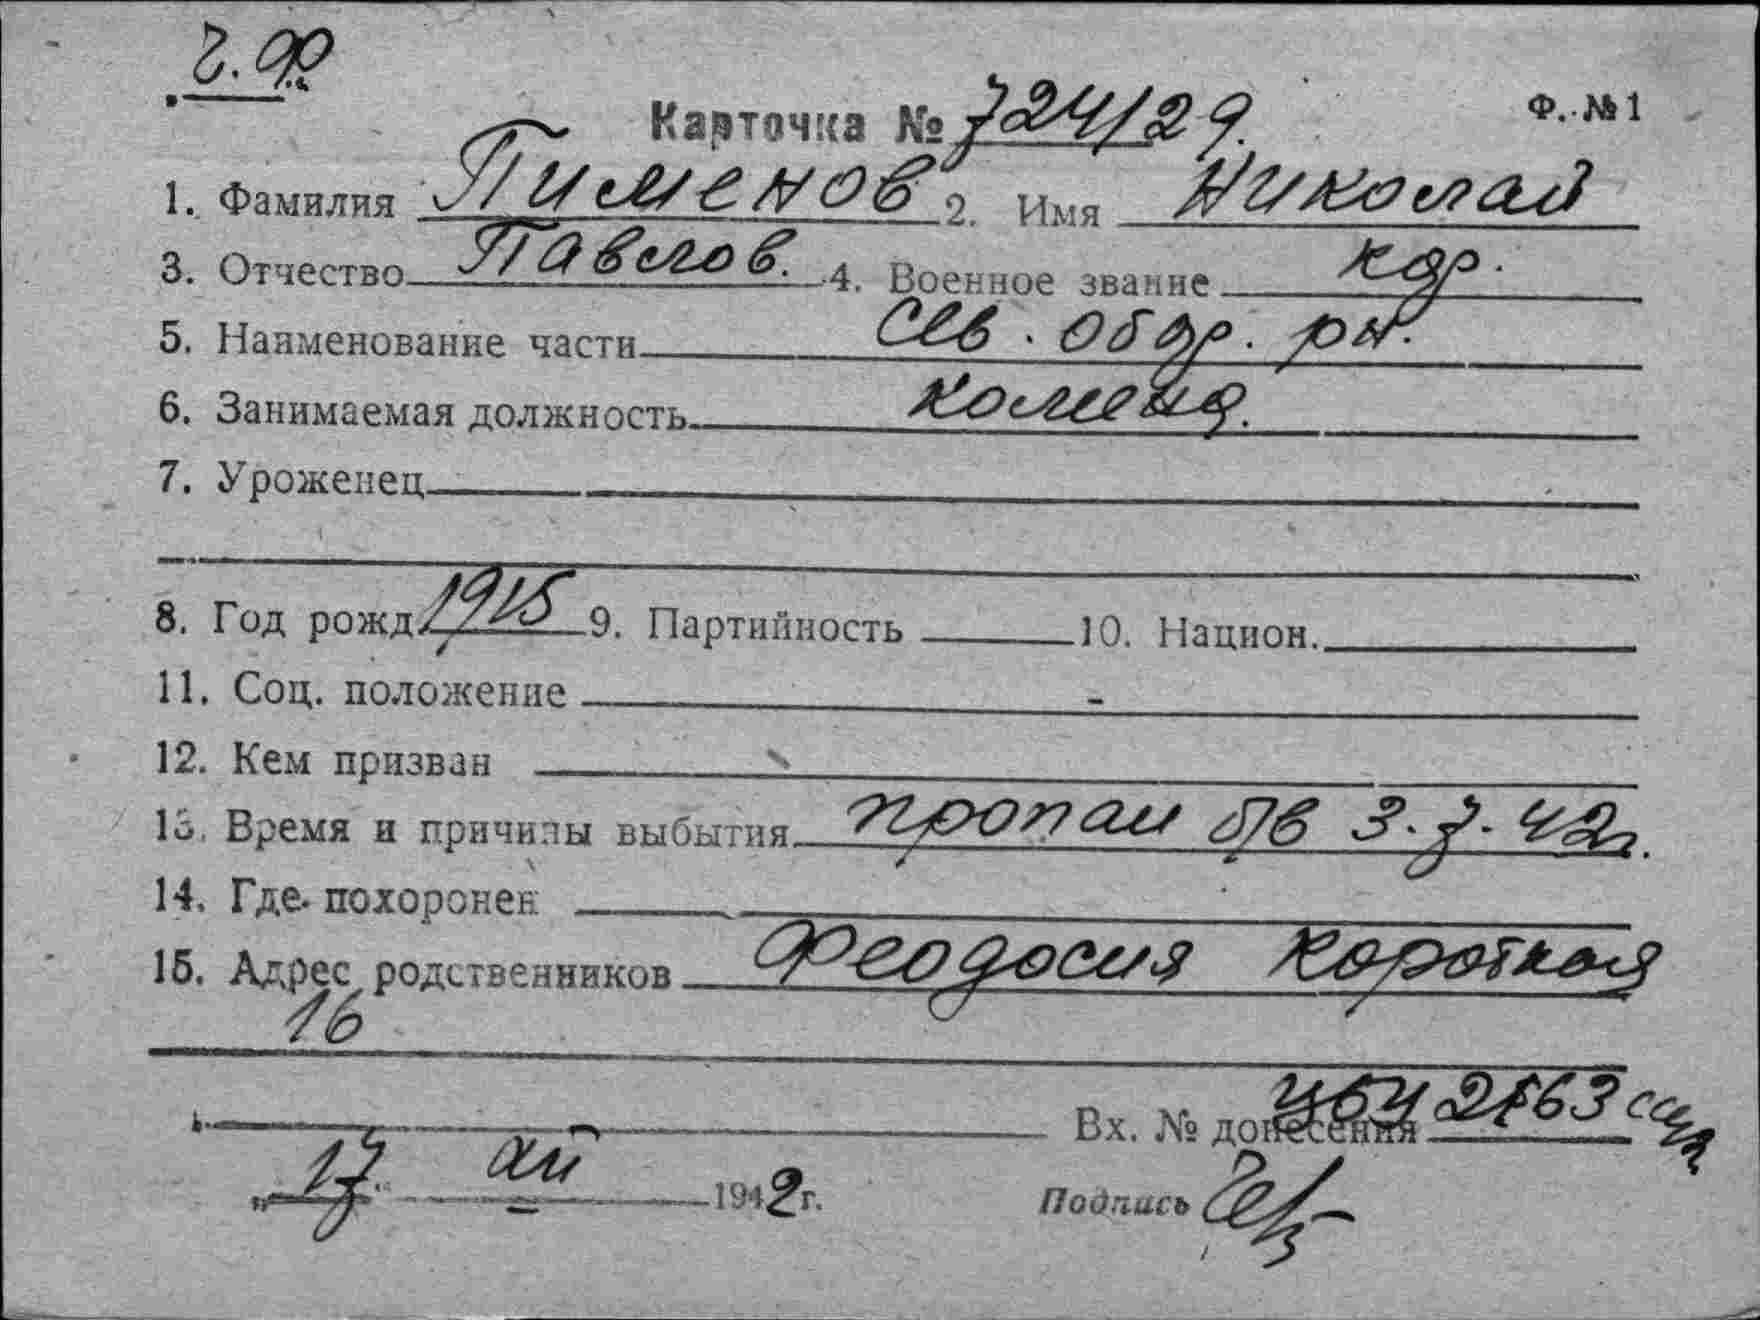 г. Ф
Карточка № 724/29. Ф. № 1
1. Фамилия Пименов 2. Имя Николай
3. Отчество Павлов. 4. Военное звание кдр.
5. Наименование части Сев. обор. рн.
6. Занимаемая должность коменд.
7. Уроженец
8. Год рожд 1915 9. Партийность 10. Национ.
11. Соц. положение -
12. Кем призван
13. Время и причины выбытия пропал б/в 3.7.42г.
14. Где похоронен
15. Адрес родственников Феодосия Короткая
16
Вх. № донесения 2163
„17" 1942 г. Подпись